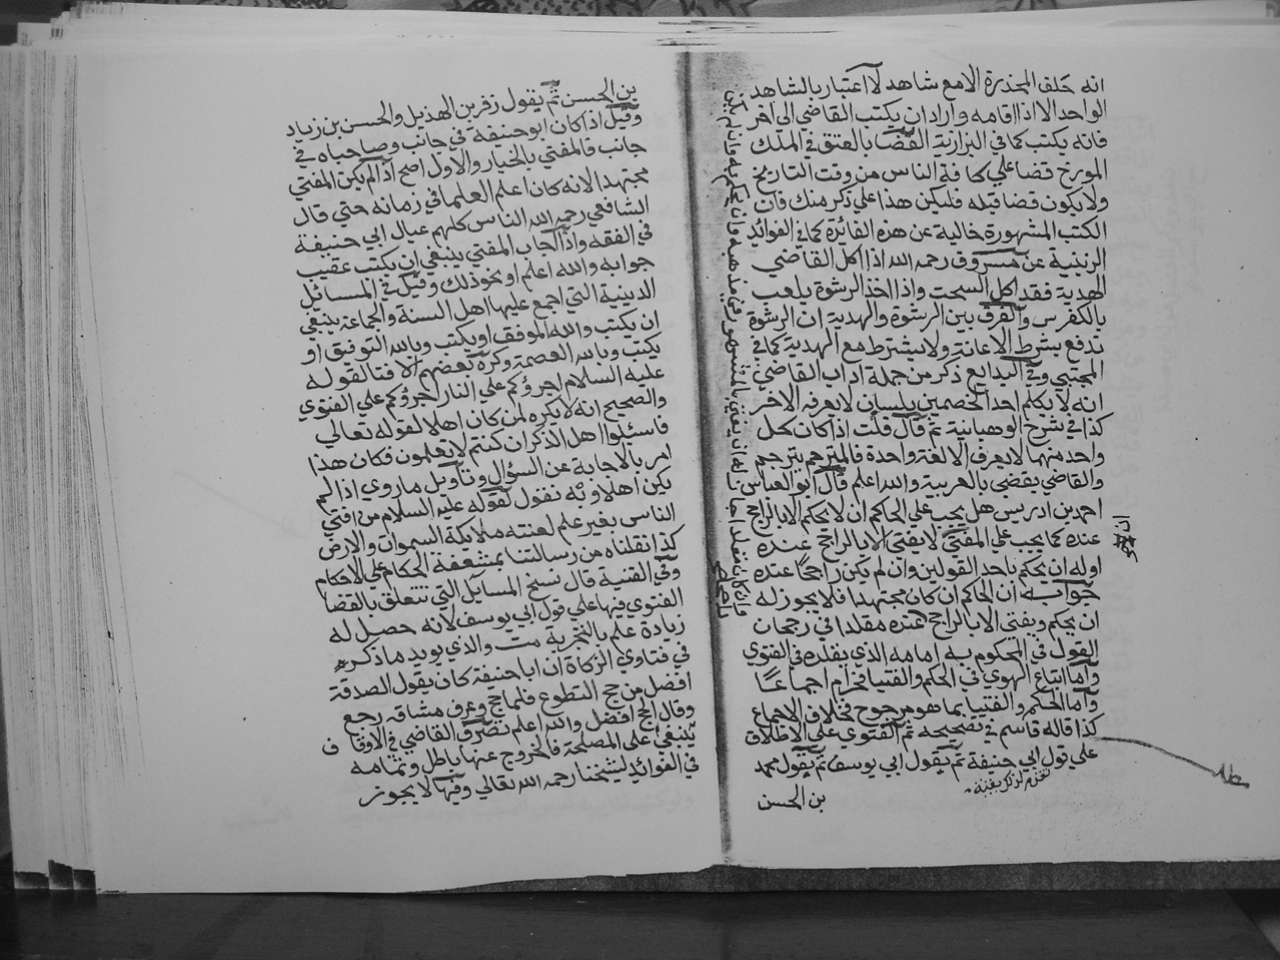 انه خلف المخدرة الامع شاهد لا اعتبار بالشاهد
الواحد الا اذا اقامه واراد ان يكتب القاضي الي اخر
فانه يكتب كما في البزازية القضا بالعتق في الملك
المورخ قضا علي كافة الناس من وقت التاريخ
ولا يكون قضا قبله فليكن هذا علي ذكر منك فان
الكتب المشهورة خالية عن هذه الفائرة كما في الفوائد
الزينية عن مسروق رحمه الله اذا اكل القاضي
الهدية فقد اكل السحت واذا اخذ الرشوة يلعب
بالكفر س والفرق بين الرشوة والهدية ان الرشوة
تدفع بشرط الاعانة ولا يشترط مع الهدية كما في
المجتبي وفي البدايع ذكر من جملة اداب القاضي
انه لا يكلم احد الخصمين بلسان لا يعرفه الاخر
كذا في شرح الوهبانية ثم قال قلت اذا كان كل
واحد منهما لا يعرف الا لغة واحدة فالمترجم يترجم
والقاضي يقضي بالعربية والله اعلم قال ابو العباس
احمد بن ادريس هل يجب علي الحاكم ان لا يحكم الا بالراجح
عنده كما يجب علي المفتي لا يفتي الا بالراجح عنده
اوله ان يحكم باحد القولين وان لم يكن راجحا عنده
جوابه ان الحاكم ان كان مجتهدا فلا يجوز له
ان يحكم ويفتي الا بالراجح عنده مقلدا في رجحان
القول في المحكوم به امامه الذي يقلده في الفتوي
واما اتباع الهوي في الحكم والفتيا فحرام اجماعا
واما الحكم والفتيا بما هو مرجوح فخلاف الاجماع
كذا قاله قاسم في تصحيحه ثم الفتوي علي الاطلاق
علي قول ابي حنيفة ثم بقول ابي يوسف ثم بقول محمد
بن الحسن
بن الحسن ثم يقول زفر بن الهذيل والحسن بن زياد
وقيل اذا كان ابو حنيفة في جانب وصاحباه في
جانب فالمفتي بالخيار والاول اصح اذا لم يكن المفتي
مجتهدا لانه كان اعلم العلما في زمانه حتي قال
الشافعي رحمه الله الناس كلهم عيال ابي حنيفة
في الفقه واذا اجاب المفتي ينبغي ان يكتب عقيب
جوابه والله اعلم او نحو ذلك وقيل في المسائل
الدينية التي اجمع عليها اهل السنة والجماعة ينبغي
ان يكتب والله الموفق او يكتب وبالله التوفيق او
يكتب وبالله العصمة وكره بعضهم الافتا لقوله
عليه السلام اجرؤكم علي النار اجرؤكم علي الفتوي
والصحيح انه لا يكره لمن كان اهلا لقوله تعالي
فاسئلوا اهل الذكر ان كنتم لا تعلمون فكان هذا
امر بالاجابة عن السؤال وتاويل ما روي اذا لم
يكن اهلا وبه نقول لقوله عليه السلام من افتي
الناس بغير علم لعنته ملايكة السموات والارض
كذا نقلناه من رسالتنا بمشعفة الحكام علي الاحكام
وفي القنية قال نسخ المسائل التي تتعلق بالقضا
الفتوي فيها علي قول ابي يوسف لانه حصل له
زيادة علم بالتجربة مت والذي يويد ما ذكره
في فتاوي الزكاة ان ابا حنيفة كان يقول الصدقة
افضل من حج التطوع فلما حج وعرف مشاقه رجع
وقال الحج افضل والله اعلم تصرف القاضي في الاوقاف
ينبغي علي المصلحة فالخروج عنها باطل وتمامه
في الفوائد لشيخنا رحمه الله تعالي وفيها لا يجوز